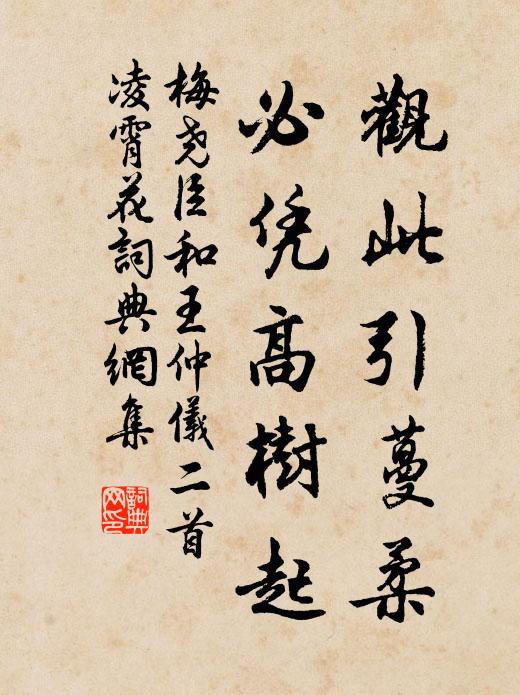 觀此引蔓柔
必凭高樹起
梅尧臣和王仲儀二首
凌霄花詞典網集
詞典
网印